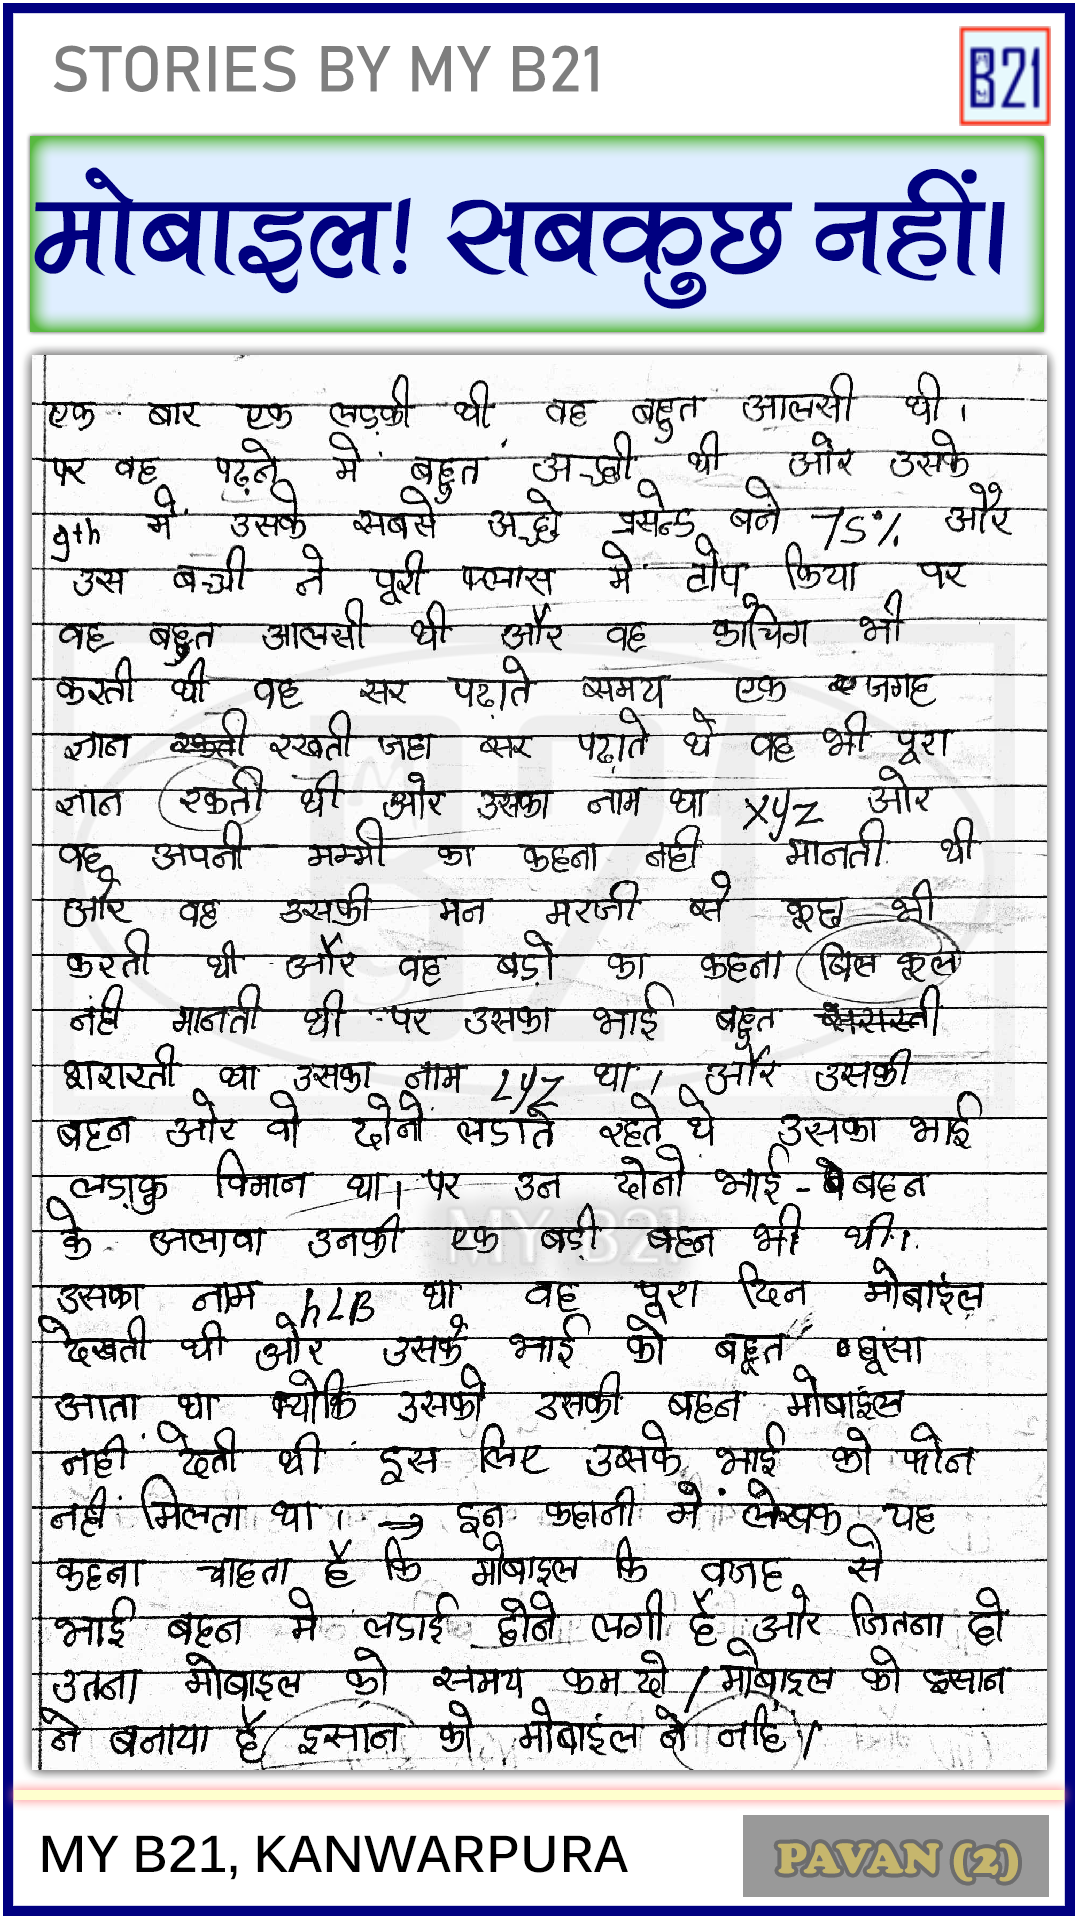 STORIES BY MY B21
B21
मोबाइल! सबकुछ नहीं।
एक बार एक लड़की थी वह बहुत आलसी थी।
पर वह पढ़ने में बहुत अच्छी थी ओर उसके
9th में उसके सबसे अच्छे प्रसेन्ड बने 75% और
उस बच्ची ने पूरी क्लास में टोप किया पर
वह बहुत आलसी थी और वह कोचिग भी
करती थी वह सर पढ़ाते समय एक जगह
ज्ञान रखती जहा सर पढ़ाते थे वह भी पूरा
ज्ञान रकती थी ओर उसका नाम था xyz ओर
वह अपनी मम्मी का कहना नही मानती थी
और वह उसकी मन मरजी से कूछ भी
करती थी और वह बड़ो का कहना बिल कूल
नही मानती थी पर उसका भाई बहूत
शरारती था उसका नाम Lyz था। और उसकी
बहन ओर वो दोनो लडाते रहते थे उसका भाई
लड़ाकु विमान था। पर उन दोनो भाई-बहन
के अलावा उनकी एक बड़ी बहन भी थी।
उसका नाम hLB था वह पूरा दिन मोबाइल
देखती थी ओर उसके भाई को बहूत घूसा
आता था क्योकि उसको उसकी बहन मोबाइल
नही देती थी इस लिए उसके भाई को फोन
नही मिलता था। → इन कहानी में लेखक यह
कहना चाहता है कि मोबाइल कि वजह से
भाई बहन मे लडाई होने लगी है ओर जितना हो
उतना मोबाइल को समय कम दो / मोबाइल को इसान
ने बनाया है इसान को मोबाइल ने नहि /
MY B21
MY B21, KANWARPURA
PAVAN (2)